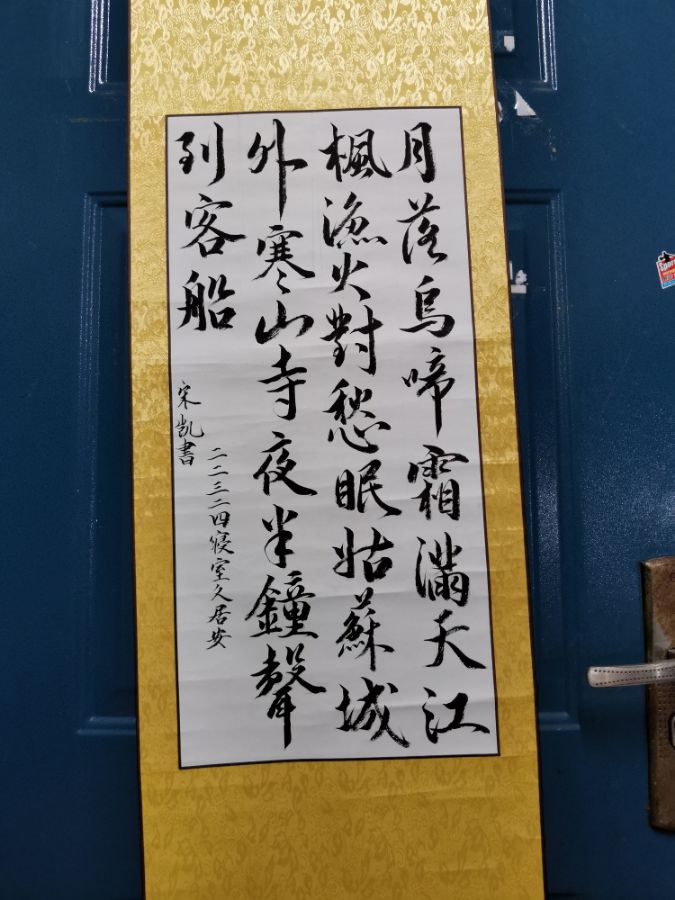 月落烏啼霜滿天江
楓漁火對愁眠姑蘇城
外寒山寺夜半鐘聲
到客船
二二三二四寝室久居安
宋凯書
Sport